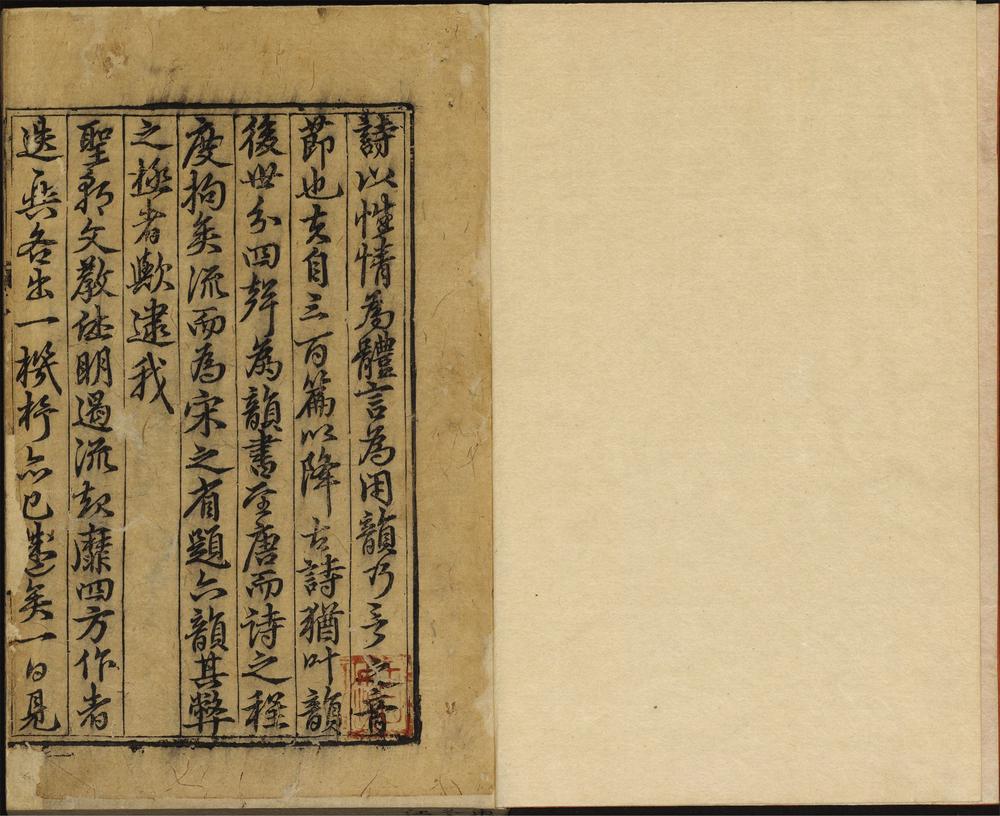 詩以性情為體言為用韻乃言之音
節也夫自三百篇以降古詩猶叶韻
後世分四聲為韻書至唐而詩之程
度拘矣流而為宋之省題六韻其弊
之極者歟逮我
聖朝文教休明遏流起靡四方作者
迭興各出一機杼亦已盛矣一日見